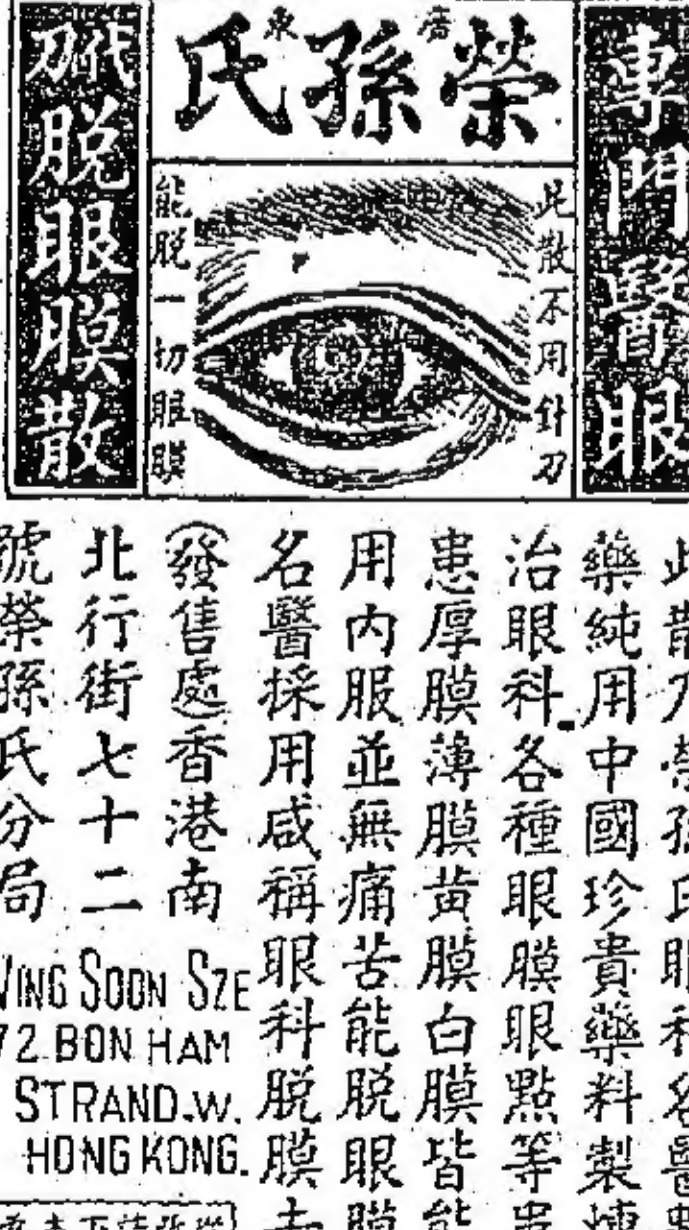 專門醫眼
廣東
榮孫氏
此散不用針刀
能脱一切眼膜
脱眼膜散
此散乃榮孫氏眼科名醫
藥純用中國珍貴藥料製煉
治眼科各種眼膜眼點等患
患厚膜薄膜黄膜白膜皆能
用内服並無痛苦能脱眼膜
名醫採用咸稱眼科脱膜
(發售處)香港南
北行街七十二
號榮孫氏分局
WING SOON SZE
72 BON HAM
STRAND.W.
HONG KONG.